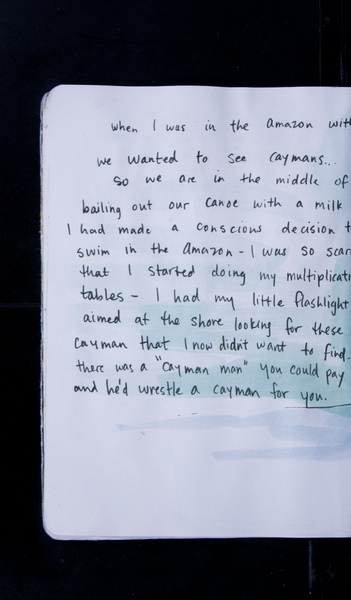 when I was in the amazon with
we wanted to see caymans...
so we are in the middle of
bailing out our canoe with a milk
I had made a conscious decision t
swim in the Amazon - I was so scar
that I started doing my multiplicati
tables - I had my little flashlight
aimed at the shore looking for these
cayman that I now didn't want to find.
there was a "cayman man" you could pay
and he'd wrestle a cayman for you.